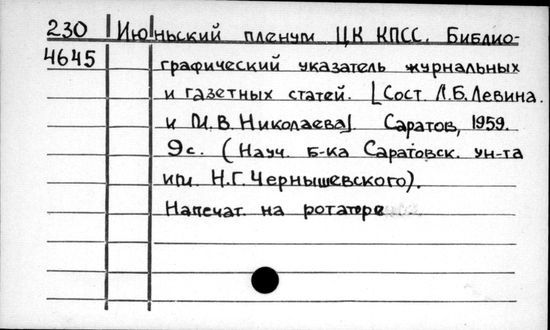 230 Июньский пленум ЦК КПСС. Библио-
4645
графический указатель журнальных
и газетных статей. [Сост. Л.Б. Левина
и М.В. Николаева]. Саратов, 1959.
9с. (Науч. б-ка Саратовск. ун-та
им. Н.Г. Чернышевского).
Напечат. на ротаторе